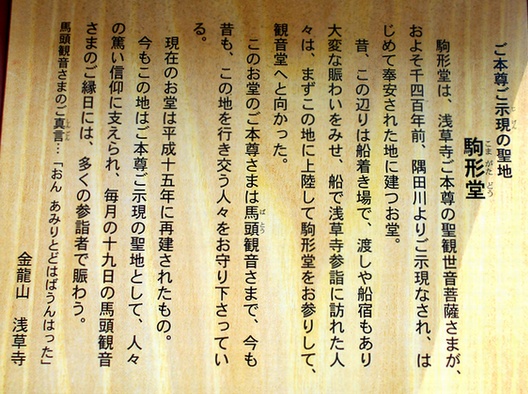 ご本尊ご示現の聖地
駒形堂
こま がた どう
駒形堂は、浅草寺ご本尊の聖観世音菩薩さまが、
およそ千四百年前、隅田川よりご示現なされ、は
じめて奉安された地に建つお堂。
昔、この辺りは船着き場で、渡しや船宿もあり
大変な賑わいをみせ、船で浅草寺参詣に訪れた人
々は、まずこの地に上陸して駒形堂をお参りして、
観音堂へと向かった。
このお堂のご本尊さまは馬頭観音さまで、今も
昔も、この地を行き交う人々をお守り下さってい
る。
現在のお堂は平成十五年に再建されたもの。
今もこの地はご本尊ご示現の聖地として、人々
の篤い信仰に支えられ、毎月の十九日の馬頭観音
さまのご縁日には、多くの参詣者で賑わう。
馬頭観音さまのご真言…「おん あみりとどはばうんはった」
金龍山 浅草寺